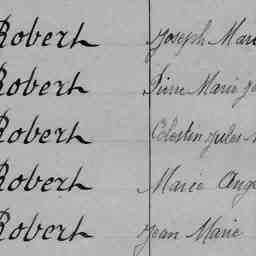 Robert Joseph Mari
Robert Pierre Marie Jo
Robert Célestin Jules
Robert Marie Ange
Robert Jean Marie